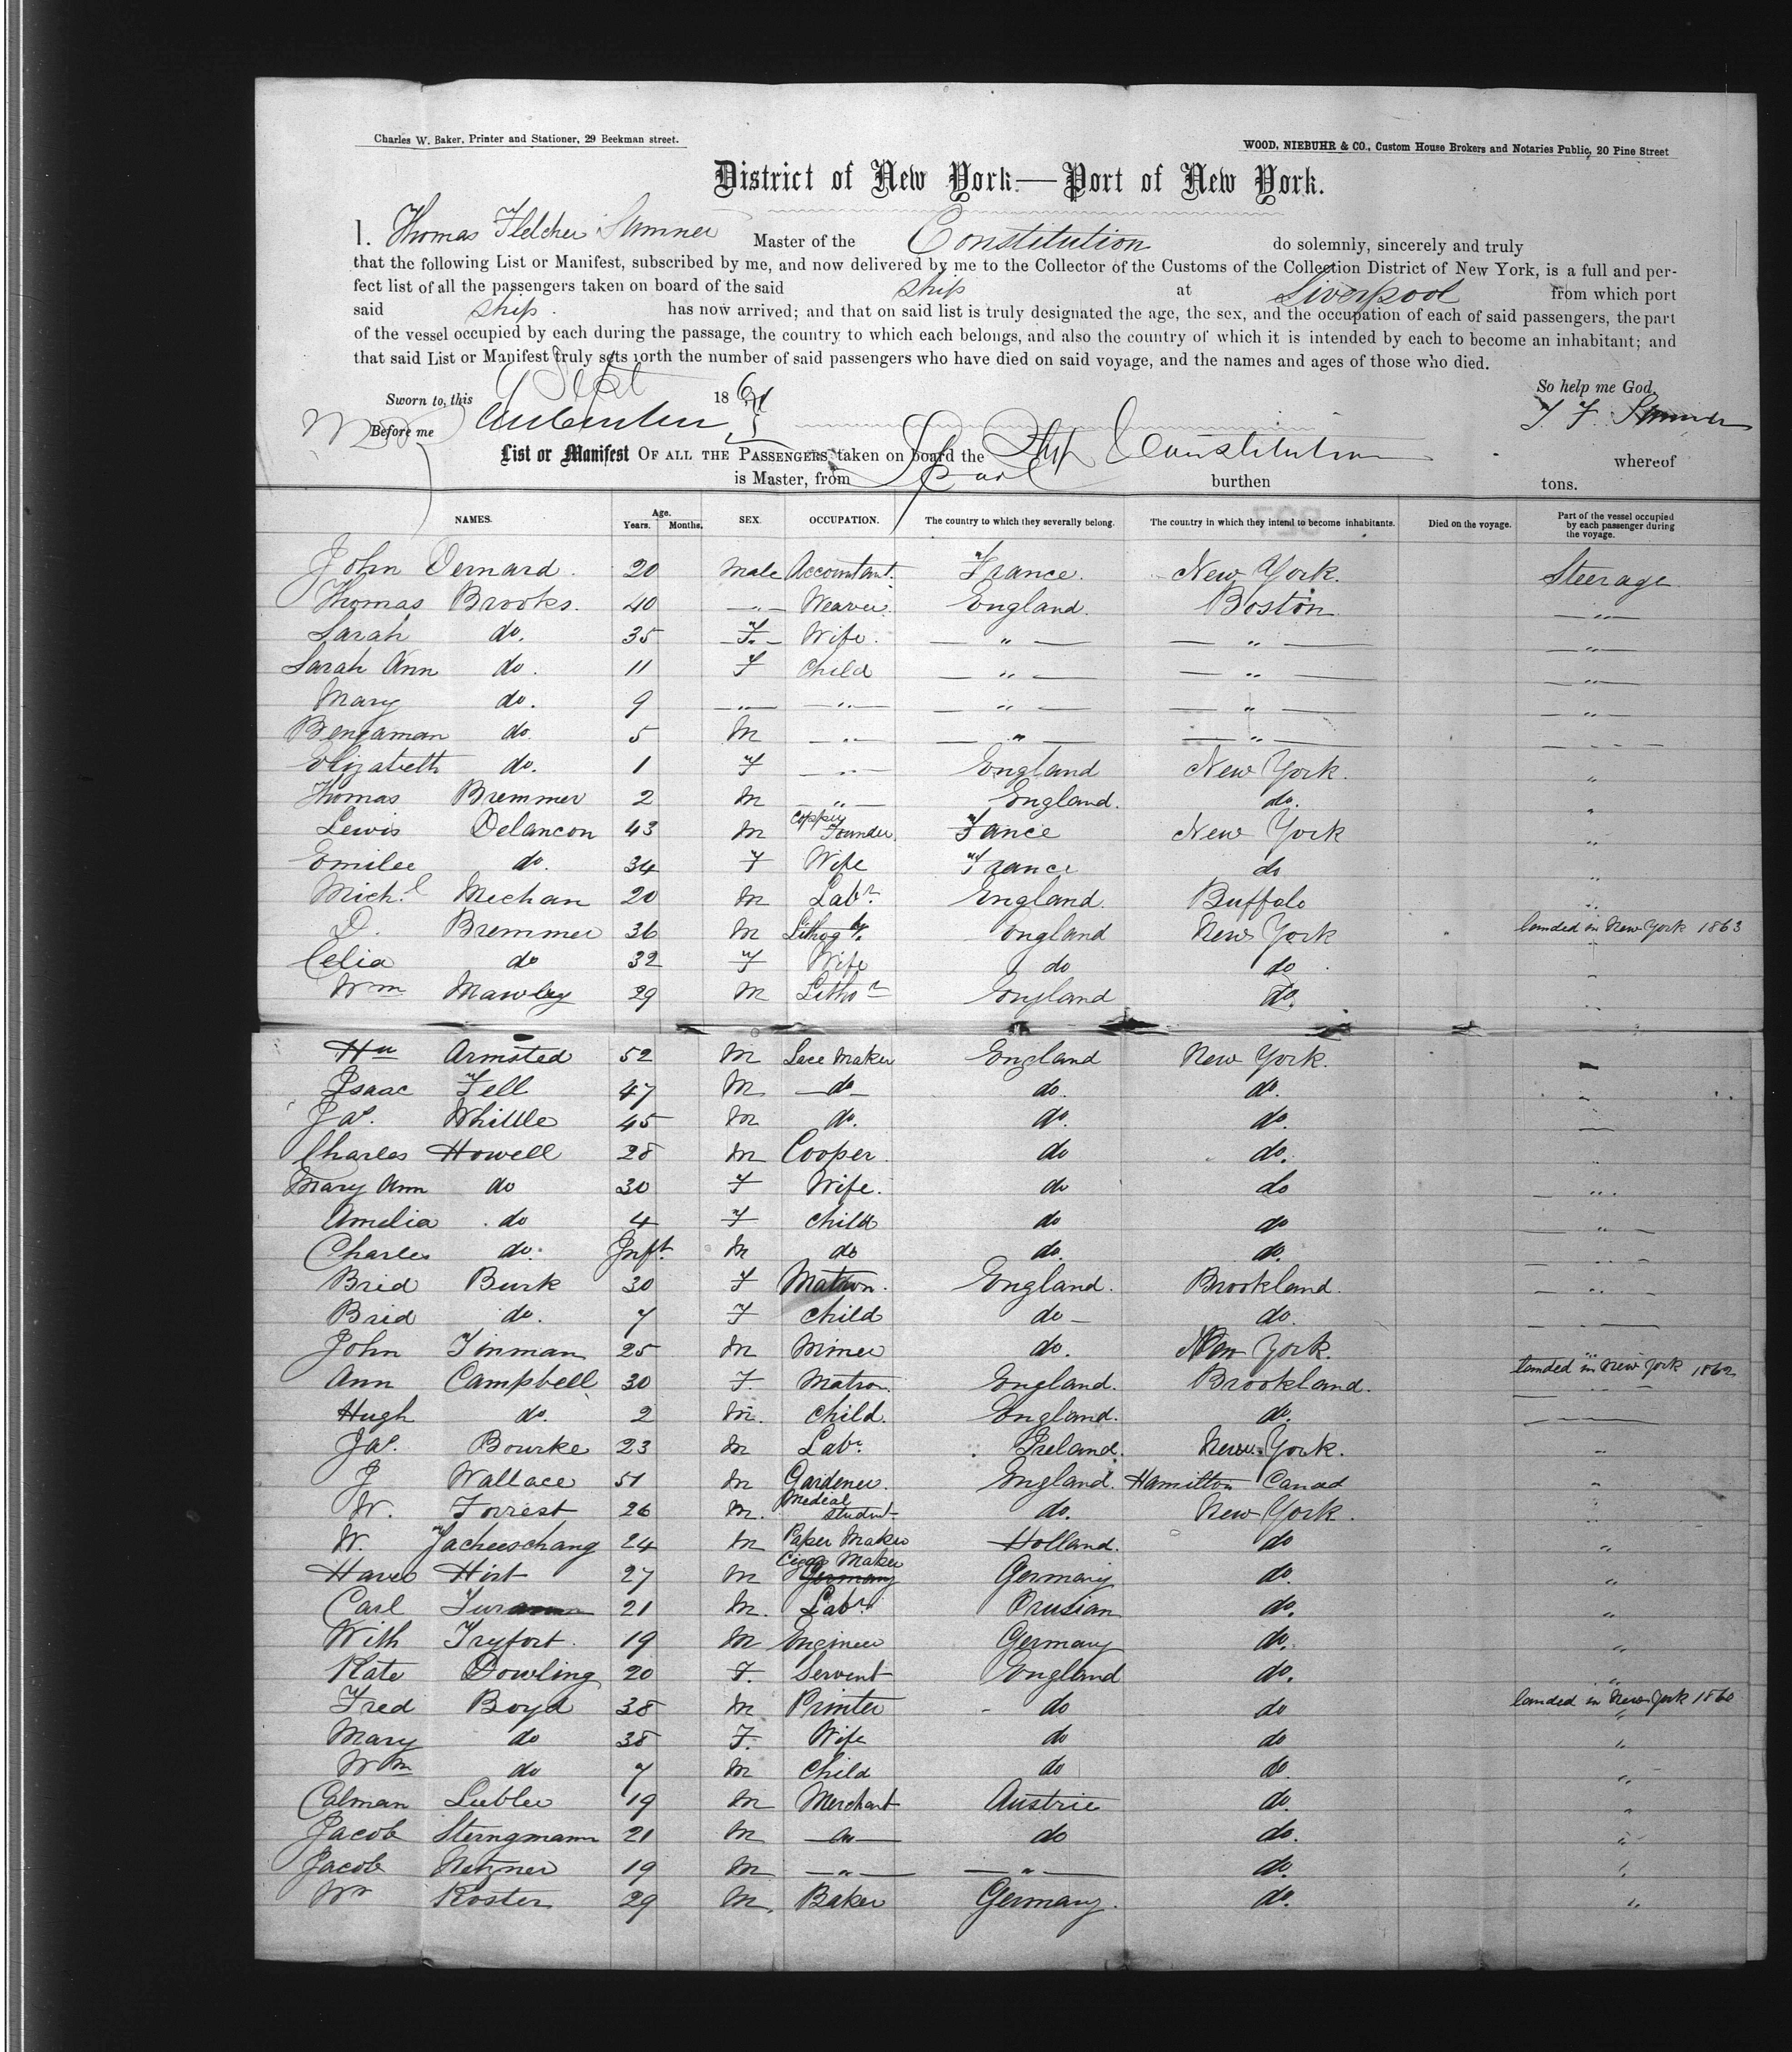 Charles W. Baker, Printer and Stationer, 29 Beekman street.
WOOD, NIEBUHR & CO., Custom House Brokers and Notaries Public, 20 Pine Street
District of New York.—Port of New York.
I. Thomas Fletcher Sumner Master of the Constitution do solemnly, sincerely and truly
that the following List or Manifest, subscribed by me, and now delivered by me to the Collector of the Customs of the Collection District of New York, is a full and per-
fect list of all the passengers taken on board of the said ship at Liverpool from which port
said ship. has now arrived; and that on said list is truly designated the age, the sex, and the occupation of each of said passengers, the part
of the vessel occupied by each during the passage, the country to which each belongs, and also the country of which it is intended by each to become an inhabitant; and
that said List or Manifest truly sets forth the number of said passengers who have died on said voyage, and the names and ages of those who died.
Sworn to, this Sept 186 So help me God.
Before me T. F. Sumner
List or Manifest OF ALL THE PASSENGERS taken on board the Ship Constitution whereof
is Master, from burthen tons.
NAMES. Age. Years. Months. SEX. OCCUPATION. The country to which they severally belong. The country in which they intend to become inhabitants. Died on the voyage. Part of the vessel occupied by each passenger during the voyage.
John Dernard. 20 Male Accountant. France. New York. Steerage
Thomas Brooks. 40 —"— Weaver England. Boston —"—
Sarah do. 35 F. Wife. —"— —"— —"—
Sarah Ann do. 11 F Child —"— —"— —"—
Mary do. 9 —"— —"— —"— —"— —"—
Bengaman do. 5 M —"— —"— —"—
Elizabeth do. 1 F —"— England New York. "
Thomas Bremmer 2 M —"— England. do. "
Lewis Delancon 43 M Copper Founder Fance New York "
Emilee do. 34 F Wife France do "
Mich.l Mechan 20 M Labr. England. Buffalo "
D. Bremmer 36 M Lithogr. England New York landed in New York 1863
Celia do 32 F Wife do do "
Wm Mawley 29 M Lithor England do.
Armsted 52 M Lace Maker England New York.
Isaac Fell 47 M —do— do. do.
Jas. Whittle 45 M do. do. do.
Charles Howell 28 M Cooper. do do. "
Mary Ann do 30 F Wife. do do —"—
Amelia do 4 F Child do do —"—
Charles do. Inft. M do do. do. —"—
Brid Burk 30 F Matron. England. Brookland. —"—
Brid do. 7 F Child do — do.
John Tinman 25 M Mimer do. New York. "
Ann Campbell 30 F. Matron England. Brookland. landed in New York 1862
Hugh do. 2 M. Child. England. do.
Jas. Bourke 23 M Labr. Ireland. New York. "
J Wallace 51 M Gardener. England. Hamilton Canad "
W. Forrest 26 M. Medical student do. New York. "
W. 24 M Paper Maker Holland. do "
Hirt 27 M Cigar Maker Germany Germany do. "
Carl 21 M. Labr. Prusian do. "
With Tryfort. 19 M Engineer Germany do. "
Kate Dowling 20 F. Servent England do. "
Fred Boyd 38 M Printer do do landed in New York 1860
Mary do 38 F. Wife do do "
Wm do 7 M Child do do. "
Calman Lubler 19 M Merchant Austrie do. "
Jacob Sterngmann 21 M —"— do do. "
Jacob Netzner 19 M —"— —"— do. "
Wm Koster 29 M. Baker Germany. do. "